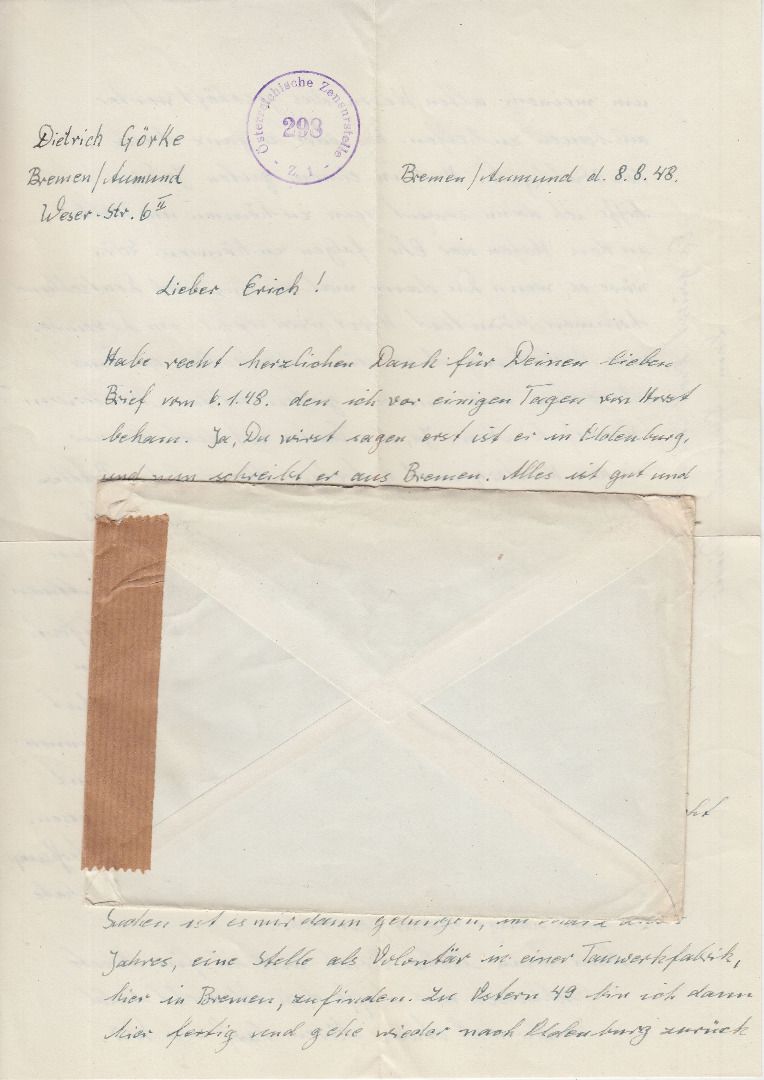 Österreichische Zensurstelle
293
- Z. 1 -
Dietrich Görke
Bremen/Aumund
Weser-Str. 6 II
Bremen/Aumund d. 8.8.48.
Lieber Erich!
Habe recht herzlichen Dank für Deinen lieben
Brief vom 6.1.48. den ich vor einigen Tagen von Horst
bekam. Ja, Du wirst sagen erst ist er in Oldenburg,
und nun schreibt er aus Bremen. Alles ist gut und
Suchen ist es mir dann gelungen,
Jahres, eine Stelle als Volontär in einer Tauwerkfabrik,
hier in Bremen, zufinden. Zu Ostern 49 bin ich dann
hier fertig und gehe wieder nach Oldenburg zurück